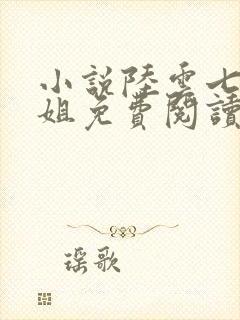 小說陸雲七
姐免費閱讀
瑶歌